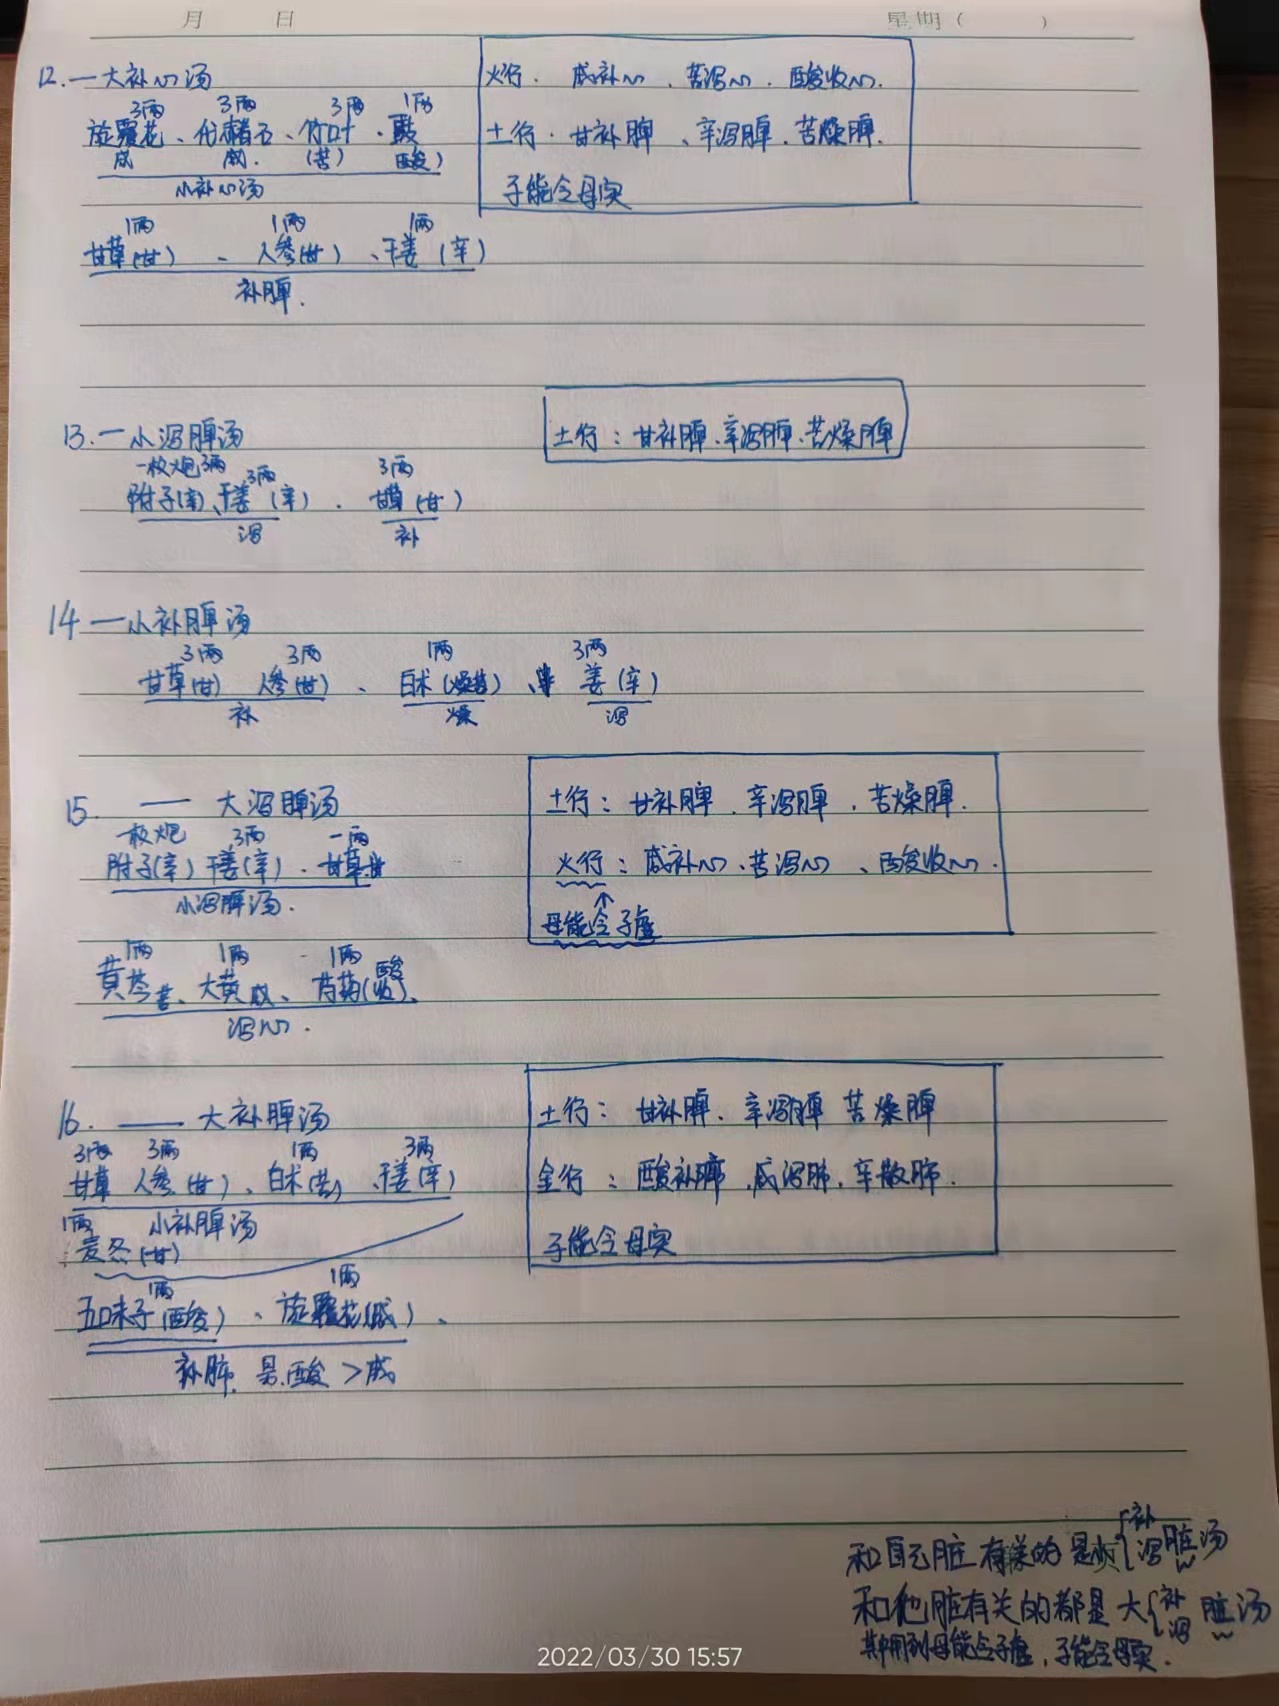 月 日 星期( )
12.一大补心汤
3两 3两 3两 1两
旋覆花、代赭石、竹叶、豉
咸 咸. (苦) 酸)
小补心汤
火行. 咸补心、苦泻心. 酸收心.
土行. 甘补脾、辛泻脾. 苦燥脾.
子能令母实
1两 1两 1两
甘草(甘) 、人参(甘) 、干姜(辛)
补脾.
13.一小泻脾汤
土行:甘补脾.辛泻脾.苦燥脾
一枚炮 3两 3两 3两
附子(辛)、干姜(辛) . 甘草(甘)
泻 补
14一小补脾汤
3两 3两 1两 3两
甘草(甘) 人参(甘) 、白术(苦) 、姜(辛)
补 燥 泻
15. — 大泻脾汤
一枚炮 3两 一两
附子(辛) 干姜(辛). 甘草甘
小泻脾汤.
土行:甘补脾.辛泻脾.苦燥脾.
火行:咸补心、苦泻心、酸收心.
母能令子虚
1两 1两 1两
黄芩苦、大黄咸、芍药(酸).
泻心.
16. — 大补脾汤
3两 3两 1两 3两
甘草 人参(甘)、白术(苦)、干姜(辛)
1两 小补脾汤
麦冬(甘)
土行:甘补脾、辛泻脾 苦燥脾
金行:酸补肺.咸泻肺.辛散肺.
子能令母实
1两 1两
五味子(酸)、旋覆花(咸)、
补肺. 是.酸>咸
和自己脏有关的是小{补 泻 脏汤
和他脏有关的都是大{补 泻 脏汤
其中用到母能令子虚,子能令母实.
2022/03/30 15:57